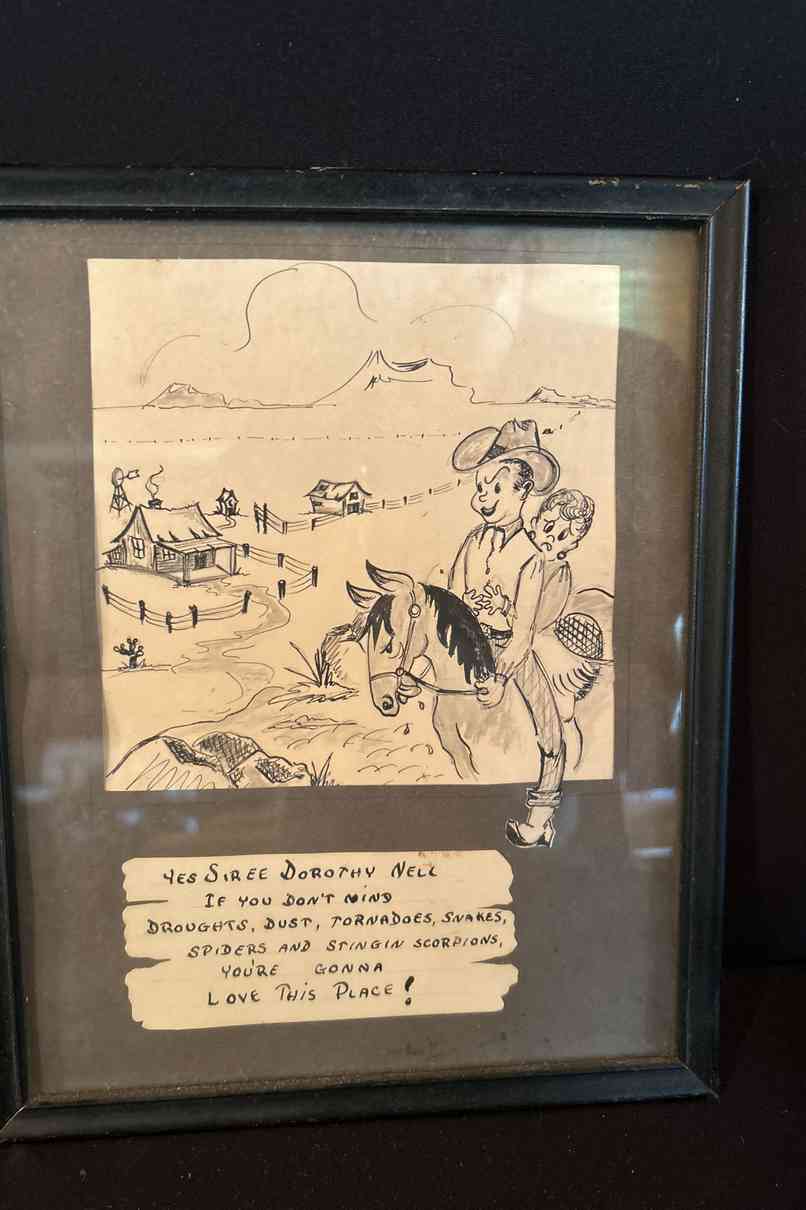 YES SIREE DOROTHY NELL
IF YOU DON'T MIND
DROUGHTS, DUST, TORNADOES, SNAKES,
SPIDERS AND STINGIN SCORPIONS,
YOU'RE GONNA
LOVE THIS PLACE!